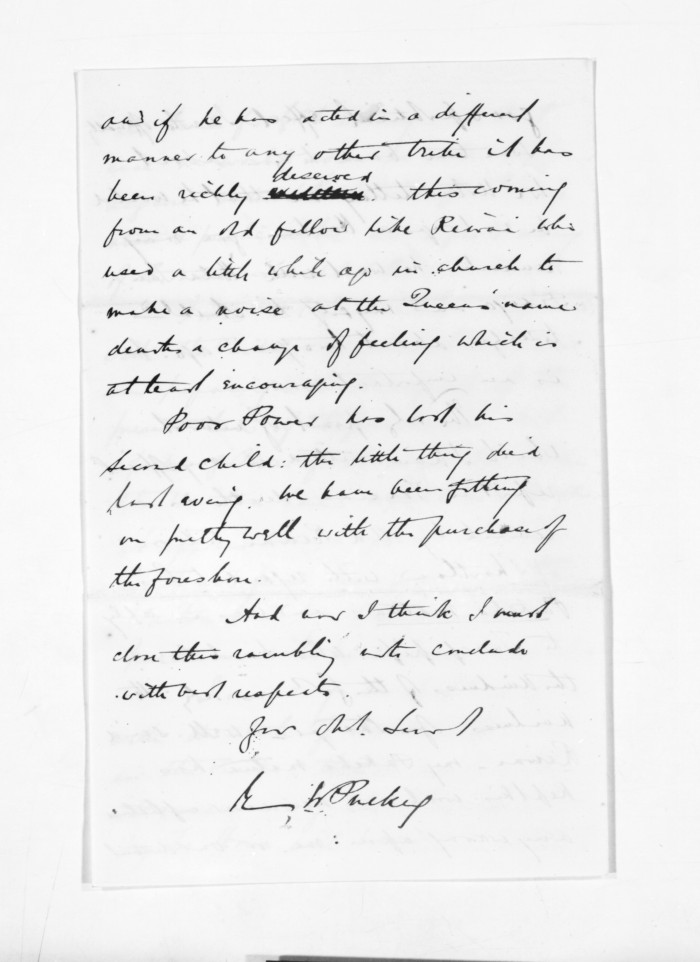 and if he has acted in a different
manner to any other tribe it has
been richly deserved. this coming
from an old fellow like Rewai who
used a little while ago in church to
make a noise at the Queen's name
denotes a change of feeling which is
at least encouraging.
Poor Power has lost his
second child: the little thing died
last eveng. We have been getting
on pretty well with the purchase of
the foreshore.
And now I think I must
close this rambling note conclude
with best respects
Your Obt. Servt
E W Puckey